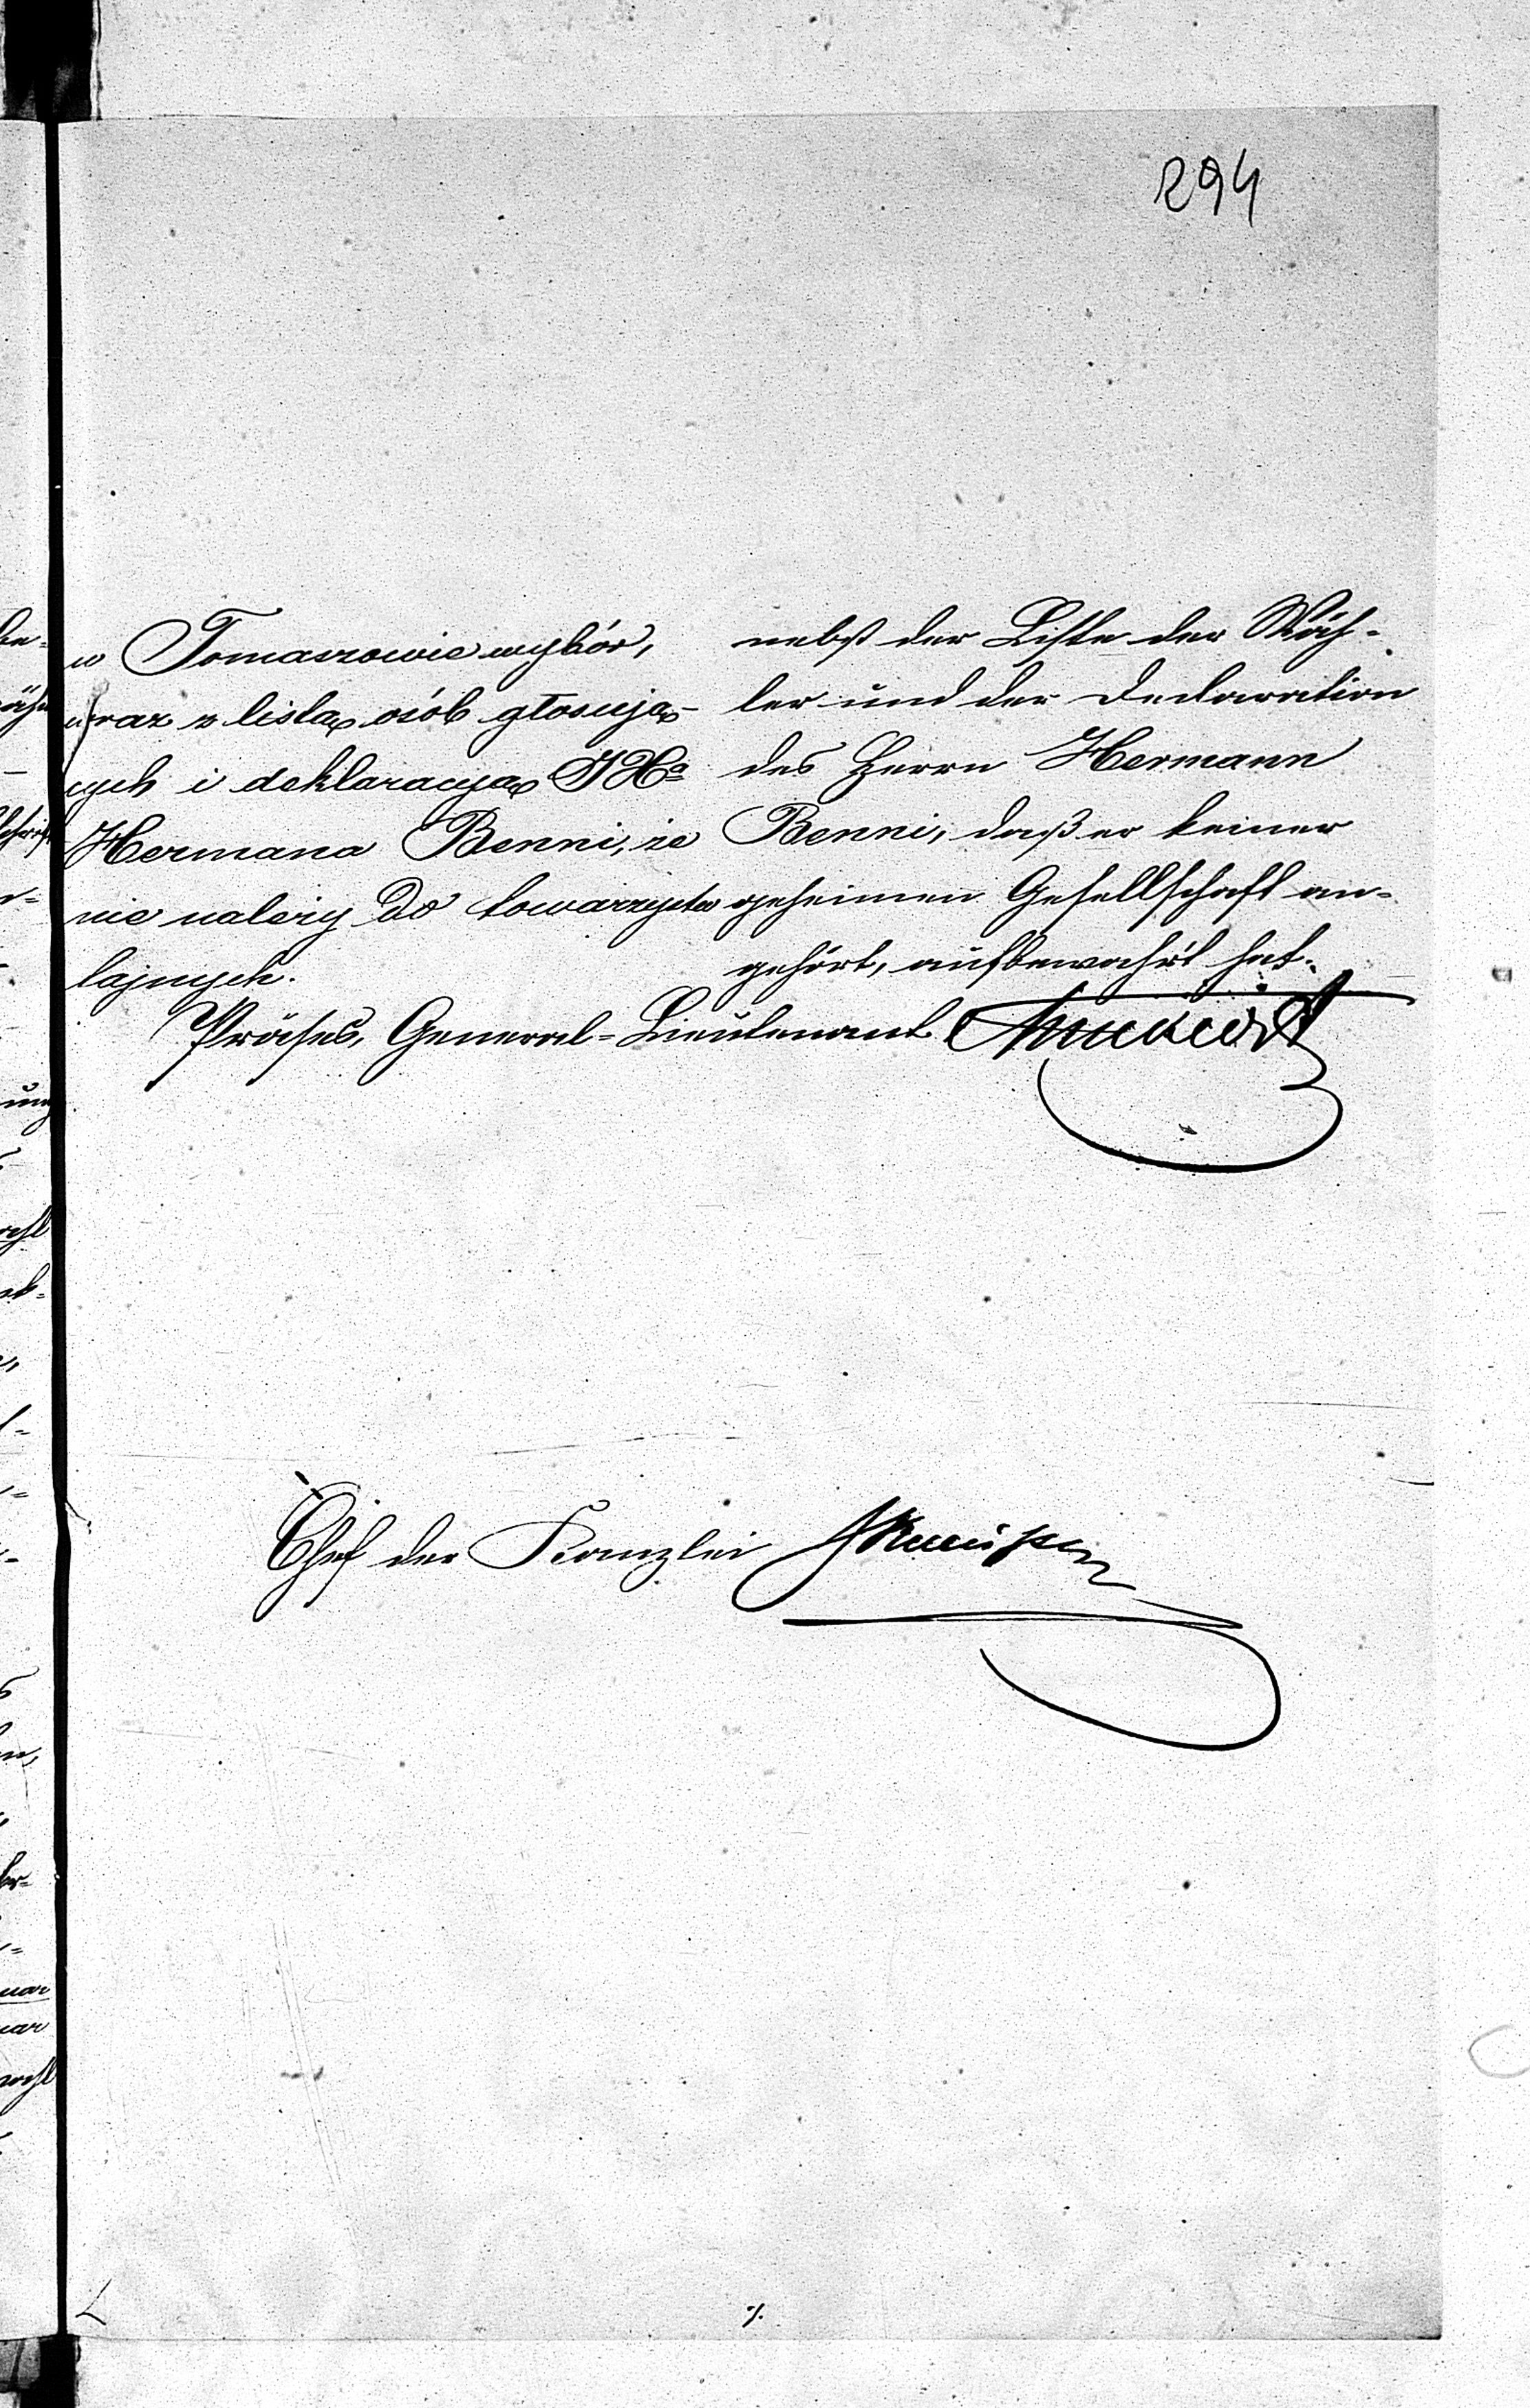 294
w Tomaszowie wybór,
wraz z listą osób głosują-
cych i deklaracyą JHo
Hermana Benni, że
nie należy do towarzystw
tajnych.
nebst der Liste der Wäh-
ler und der Declaration
des Herrn Hermann
Benni, daß er keiner
geheimen Gesellschaft an-
gehört, aufbewahrt hat.
Präses, General-Lieutenant
Chef der Kanzlei